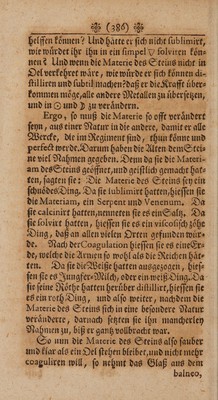 (386)
heissen können? Und hätte er sich nicht sublimirt,
wie würdet ihr ihn in ein simpel ☿ solviren kön-
nen? Und wenn die Materie des Steins nicht in
Oel verkehret wäre, wie würde er sich können di-
stilliren und subtil machen? daß er die Kraffte über-
kommen möge, alle andere Metallen zu übersetzen,
und in ☉ und ☽ zu verändern.
Ergo, so muß die Materie so offt verändert
seyn, aus einer Natur in die andere, damit er alle
Wercke, die im Regiment sind, thun könte und
perfect werde. Darum haben die Alten dem Stei-
ne viel Nahmen gegeben. Denn da sie die Materi-
am des Steins geöffnet, und geistlich gemacht hat-
ten, sagten sie: Die Materie des Steins sey ein
schnödes Ding. Da sie sublimirt hatten, hiessen sie
die Materiam, ein Serpent und Venenum. Da
sie calcinirt hatten, nenneten sie es ein Saltz. Da
sie solvirt hatten, hiessen sie es ein viscosisch zöhe
Ding, daß an allen vielen Orten gefunden wür-
de. Nach der Coagulation hiessen sie es eine Er-
de, welche die Armen so wohl als die Reichen hät-
ten. Da sie die Weisse hatten ausgezogen, hies-
sen sie es Jungfer-Milch, oder ein weiß Ding. Da
sie seine Röthe hatten herüber distilliret, hiessen sie
es ein roth Ding, und also weiter, nachdem die
Materie des Steins sich in eine besonder Natur
veränderte, darnach setzten sie ihn mancherley
Nahmen zu, biß er gantz vollbracht war.
So nun die Materie des Steins also sauber
und klar als ein Oel stehen bleibet, und nicht mehr
coaguliren will, so nehmt das Glaß aus dem
balneo,